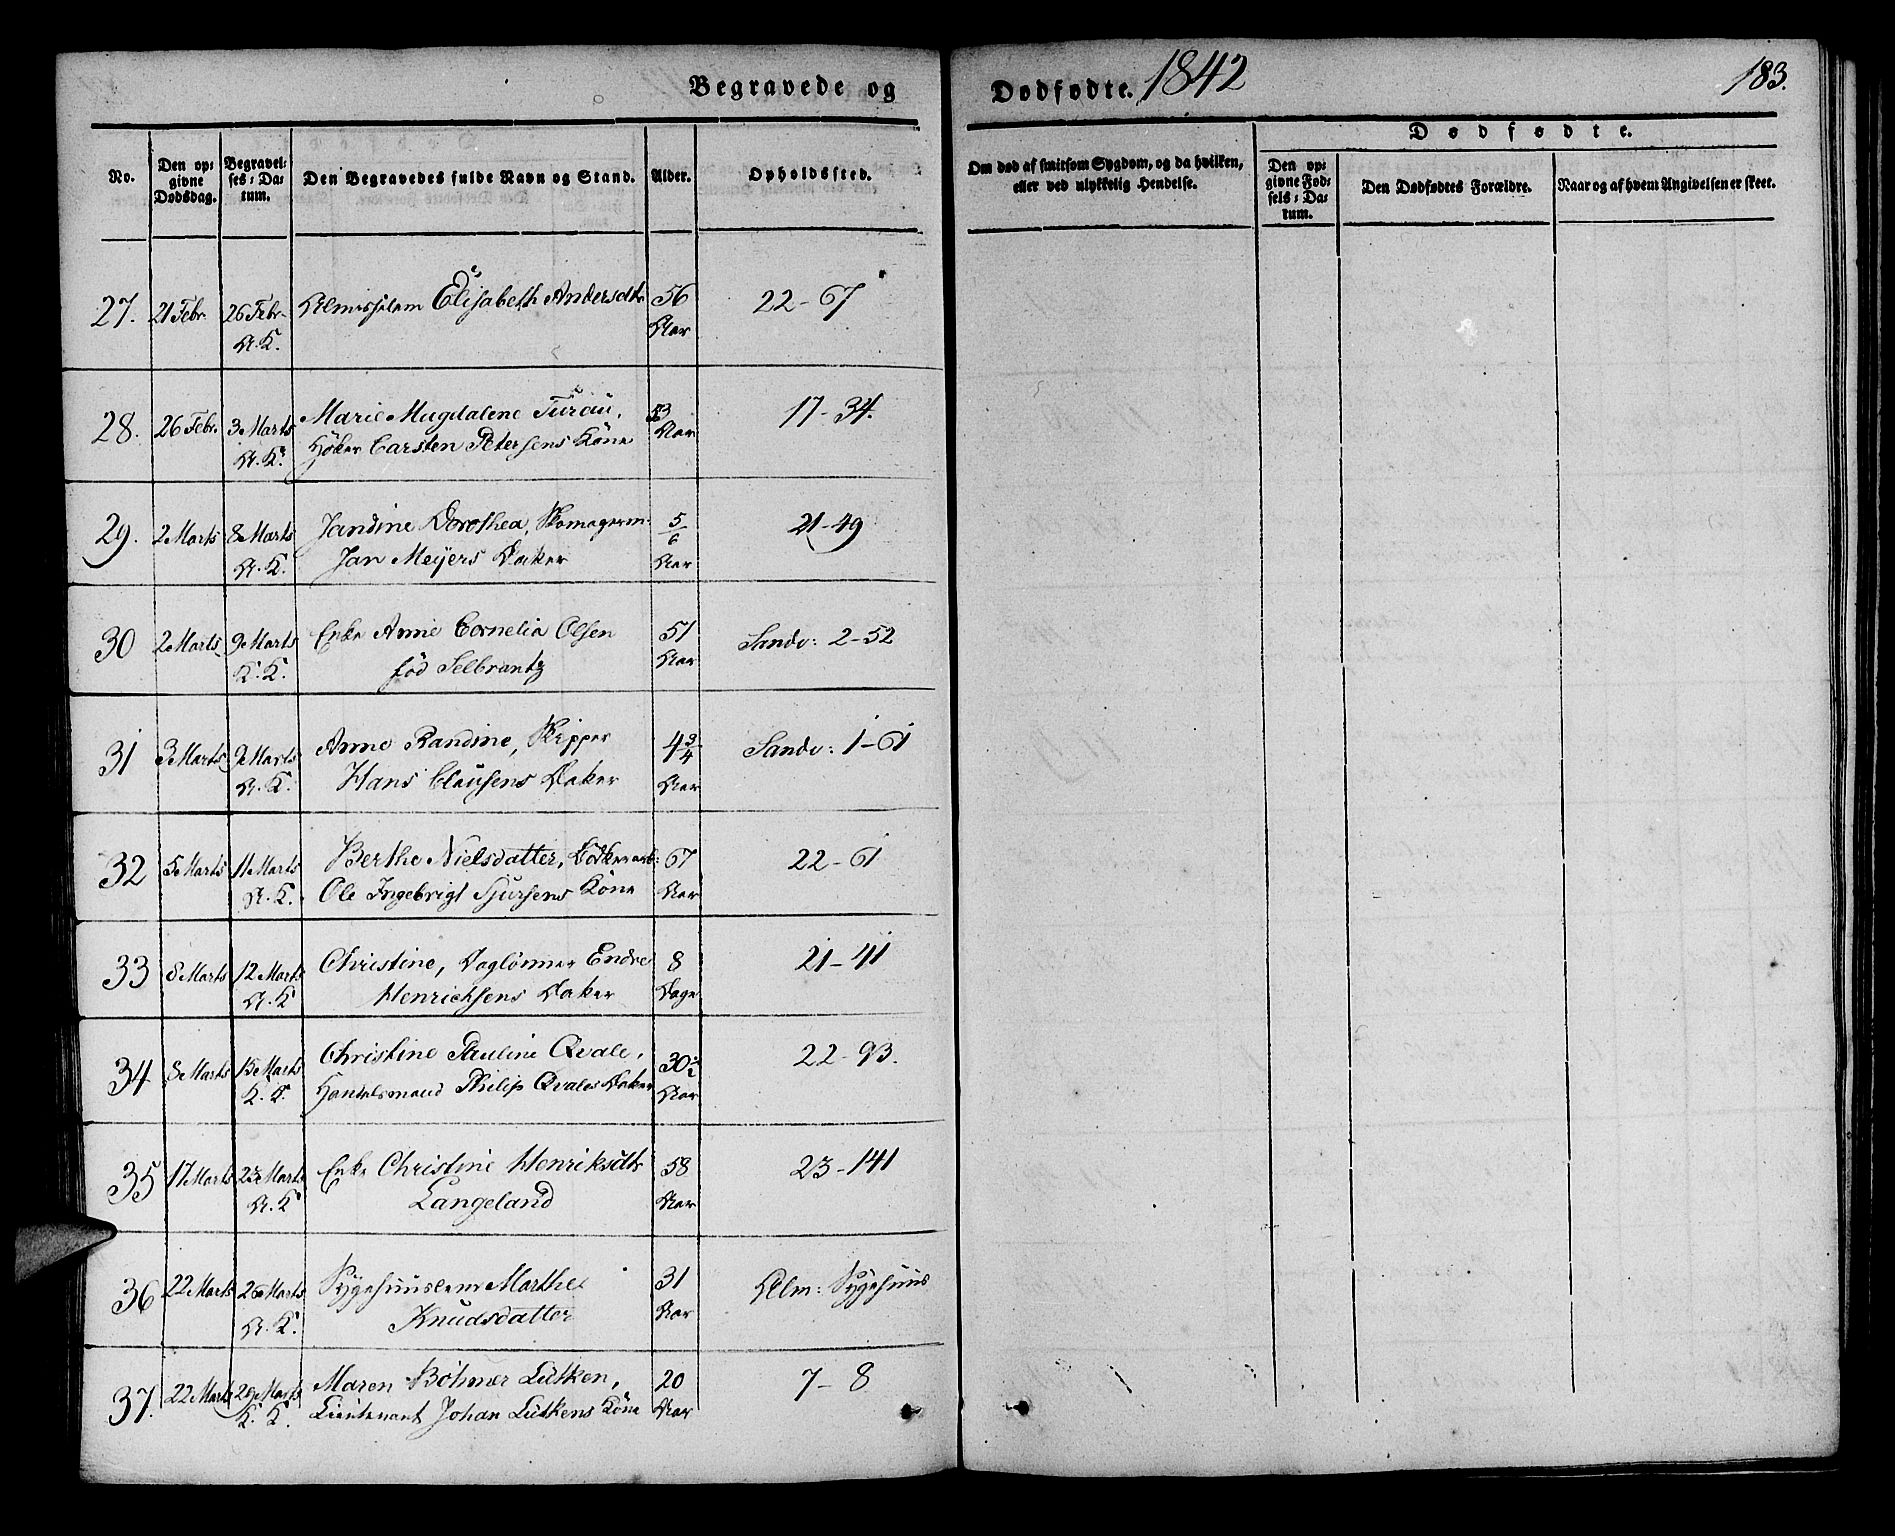 Begravede og Dødfødte. 1842
183.
No.
Den opgivne Dødsdag.
Begravelses-Datum.
Den Begravedes fulde Navn og Stand.
Alder.
Opholdssted.
Om død af smitsom Sygdom, og da hvilken, eller ved ulykkelig Hendelse.
Dødfødte.
Den opgivne Fødsels-Datum.
Den Dødfødtes Forældre.
Naar og af hvem Angivelsen er skeet.
27. 21 Febr. 26 Febr. Elisabeth Andersdtr 56 22-67
A. K. Aar
28. 26 Febr. 3 Marts Marie Magdalene Turau, 53 17-34.
A. K. Høker Carsten Petersens Kone Aar
29. 2 Marts 8 Marts Jandine Dorothea, Skomagerm. 5/6 21-49
A. K. Jan Meyers Datter Aar
30 2 Marts 9 Marts Enke Anne Cornelia Olsen 51 Sandv: 2-52
K. K. fød Selbrantz Aar
31 3 Marts 9 Marts Anne Randine, Skipper 4 3/4 Sandv: 1-61
A. K. Hans Clausens Datter Aar
32 5 Marts 11 Marts Berthe Nielsdatter, 67 22-61
A. K. Ole Ingebrigt Sjursens Kone Aar
33 8 Marts 12 Marts Christine, Daglønner Endre 8 21-41
A. K Henrichsens Datter Dage
34 8 Marts 15 Marts Christine Pauline Qvale, 30 1/2 22-93.
K. K. Handelsmand Philip Qvales Datter Aar
35 17 Marts 23 Marts Enke Christine Henriksdtr 58 23-141
A. K Langeland Aar
36 22 Marts 26 Marts Sygehuuslem Marthe 31 Alm: Sygehuus
A. K. Knudsdatter Aar
37. 22 Marts 29 Marts Maren Bóhmer Lütken, 20 7-8
K. K. Lieutenant Johan Lütkens Kone Aar